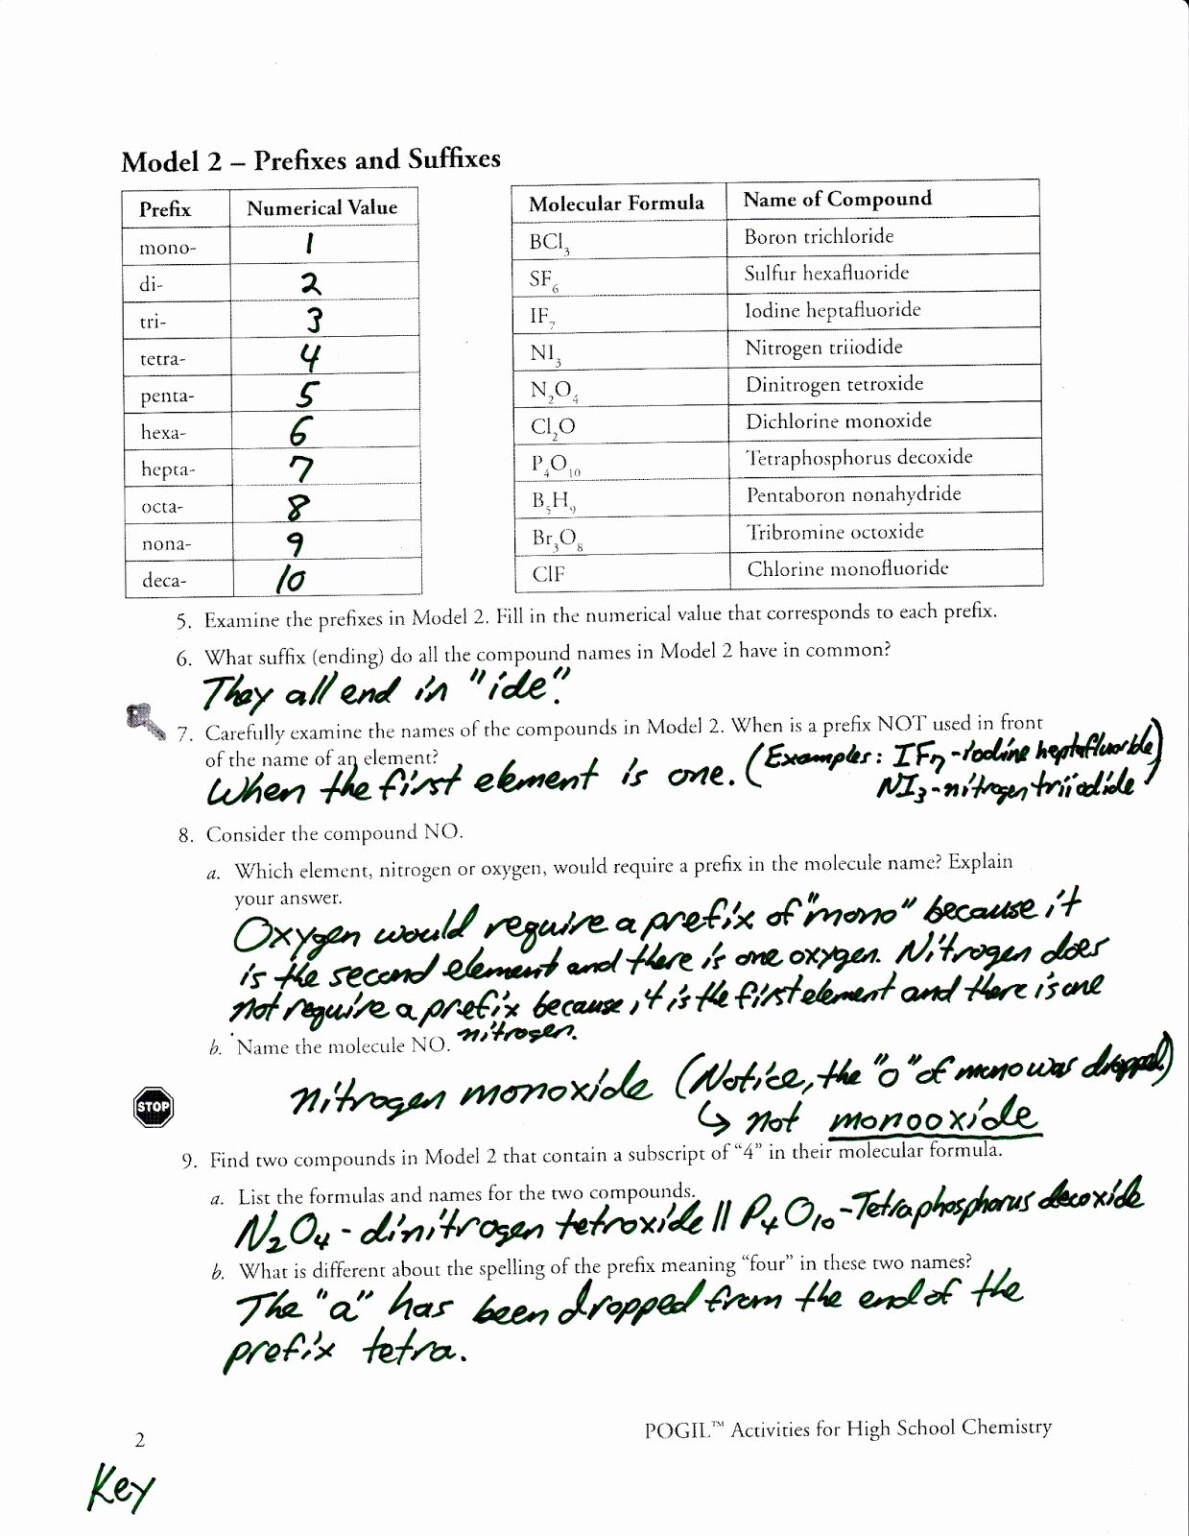 Model 2 – Prefixes and Suffixes
Prefix Numerical Value
mono- 1
di- 2
tri- 3
tetra- 4
penta- 5
hexa- 6
hepta- 7
octa- 8
nona- 9
deca- 10
Molecular Formula Name of Compound
BCl3 Boron trichloride
SF6 Sulfur hexafluoride
IF7 Iodine heptafluoride
NI3 Nitrogen triiodide
N2O4 Dinitrogen tetroxide
Cl2O Dichlorine monoxide
P4O10 Tetraphosphorus decoxide
B5H9 Pentaboron nonahydride
Br3O8 Tribromine octoxide
ClF Chlorine monofluoride
5. Examine the prefixes in Model 2. Fill in the numerical value that corresponds to each prefix.
6. What suffix (ending) do all the compound names in Model 2 have in common?
They all end in "ide".
7. Carefully examine the names of the compounds in Model 2. When is a prefix NOT used in front
of the name of an element?
When the first element is one. (Examples: IF7 - iodine heptafluoride
NI3 - nitrogen triiodide)
8. Consider the compound NO.
a. Which element, nitrogen or oxygen, would require a prefix in the molecule name? Explain
your answer.
Oxygen would require a prefix of "mono" because it
is the second element and there is one oxygen. Nitrogen does
not require a prefix because it is the first element and there is one
nitrogen.
b. Name the molecule NO.
nitrogen monoxide (Notice, the "o" of mono was dropped)
↳ not monooxide
STOP
9. Find two compounds in Model 2 that contain a subscript of “4” in their molecular formula.
a. List the formulas and names for the two compounds.
N2O4 - dinitrogen tetroxide || P4O10 - Tetraphosphorus decoxide
b. What is different about the spelling of the prefix meaning “four” in these two names?
The "a" has been dropped from the end of the
prefix tetra.
2
POGIL™ Activities for High School Chemistry
Key